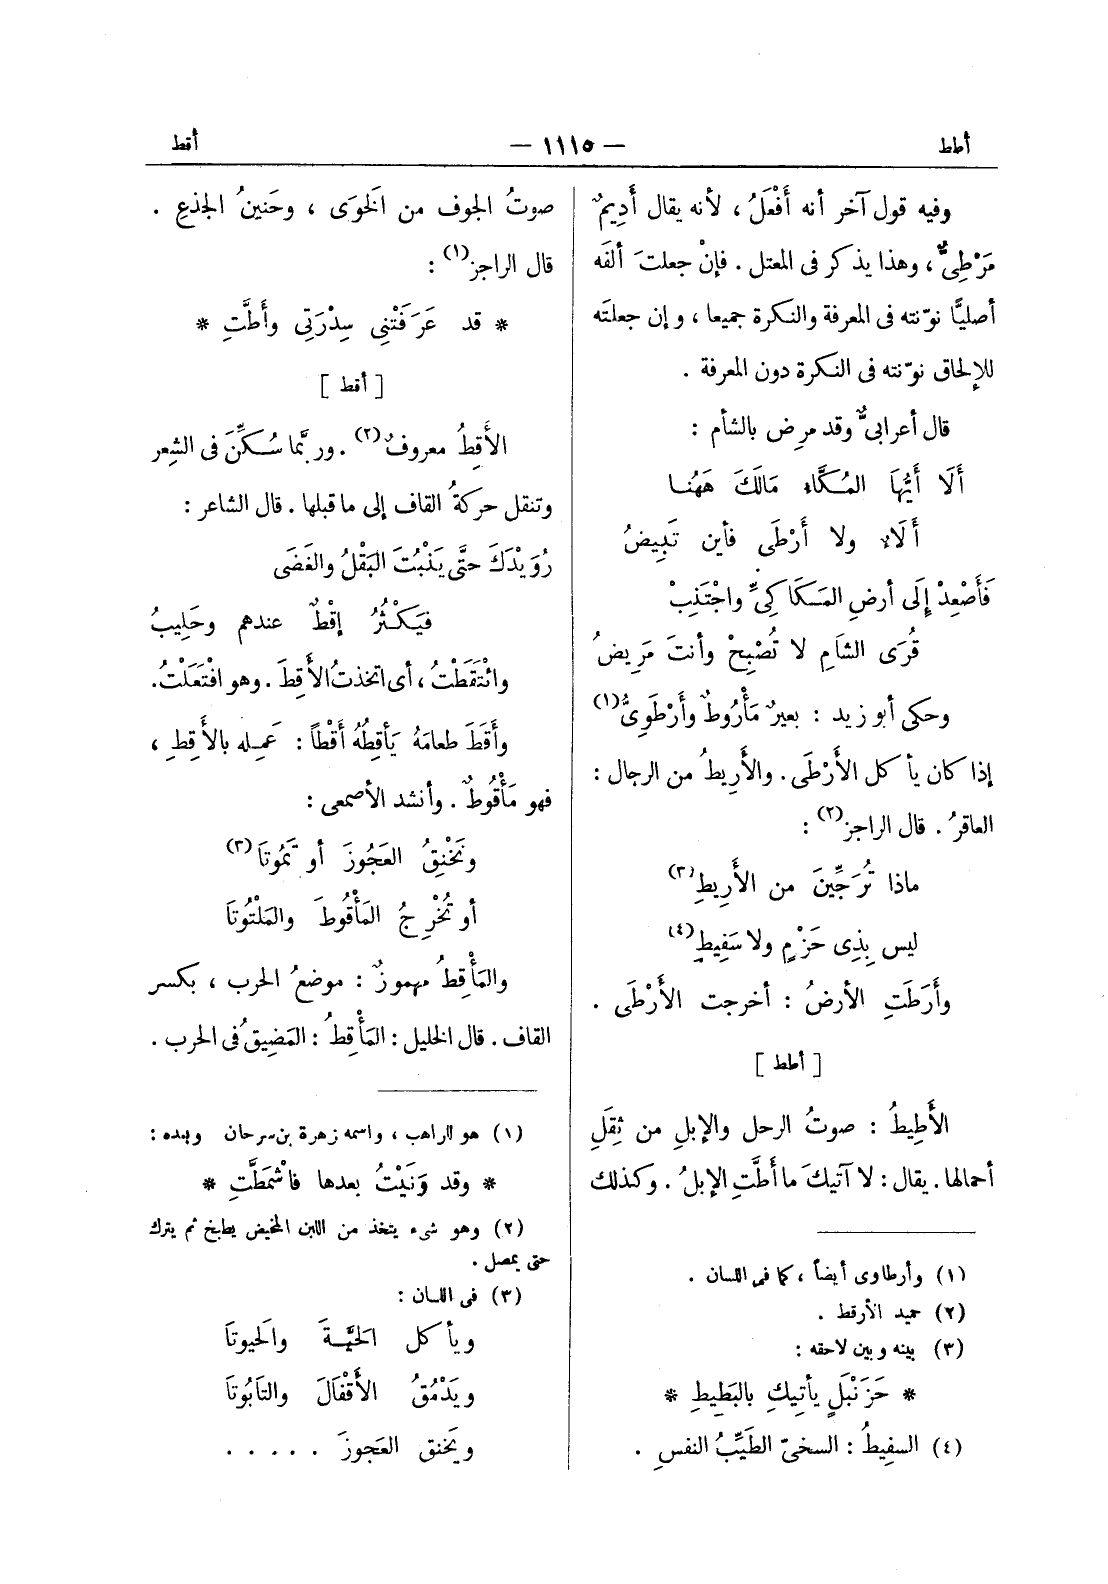 أطط
— ١١١٥ —
أقط
وفيه قول آخر أنه أَفْعَلُ ، لأنه يقال أَدِيمٌ
مَرْطِىٌّ ، وهذا يذكر فى المعتل . فإنْ جعلتَ ألفَه
أصليًّا نوّنته فى المعرفة والنكرة جميعا ، وإن جعلتَه
للإلحاق نوّنته فى النكرة دون المعرفة .
قال أعرابىٌّ وقد مرِض بالشأم :
أَلَا أَيُّهَا المُكَّاءِ مَالَكَ هَهُنا
أَلَاءِ ولا أَرْطَى فأين تَبِيضُ
فَأَصْعِدْ إِلَى أرضِ المَكَاكِىِّ واجْتَنِبْ
قُرَى الشامِ لا تُصْبِحْ وأنتَ مَرِيضُ
وحكى أبو زيد : بعيرٌ مَأْرُوطٌ وأَرْطَوِىٌّ (١)
إذا كان يأ كل الأَرْطَى . والأَرِيطُ من الرجال :
العاقرُ . قال الراجز (٢) :
ماذا تُرَجِّينَ من الأَرِيطِ (٣)
ليس بِذِى حَزْمٍ ولا سَفِيطٍ (٤)
وأَرَطَتِ الأرضُ : أخرجت الأَرْطَى .
[ أطط ]
الأَطِيطُ : صوتُ الرحل والإبلِ من ثِقَلِ
أحمالها . يقال : لا آتيكَ ما أَطَّتِ الإبلُ . وكذلك
(١) وأرطاوى أيضاً ، كما فى اللسان .
(٢) حميد الأرقط .
(٣) بينه وبين لاحقه :
* حَزَنْبَلٍ يأتِيكِ بالبَطِيطِ *
(٤) السفِيطُ : السخىّ الطَيِّبُ النفسِ .
صوتُ الجوف من الخَوَى ، وحَنينُ الجِذعِ .
قال الراجز (١) :
* قد عَرَفَتْنِى سِدْرَتِى وأَطَّتِ *
[ أقط ]
الأَقِطُ معروفٌ (٢) . وربَّما سُكِّنَ فى الشِعر
وتنقل حركةُ القاف إلى ما قبلها . قال الشاعر :
رُوَيْدَكَ حتَّى يَنْبُتَ البَقْلُ والغَضَى
فيَكْثُرُ إقْطٌ عندهم وحَلِيبُ
وائْتَقَطْتُ ، أى اتخذتُ الأَقِطَ . وهو افْتَعَلْتُ .
وأَقَطَ طعامَهُ يَأقِطُهُ أَقْطاً : عَمِله بالأَقِطِ ،
فهو مَأْقُوطٌ . وأنشد الأصمعى :
ونَخْنِقُ العَجُوزَ أو تَمُوتَا (٣)
أو تُخْرِجُ المَأْقُوطَ والمَلْتُوتَا
والمَأْقِطُ مهموزٌ : موضعُ الحرب ، بكسر
القاف . قال الخليل : المَأْقِطُ : المَضِيقُ فى الحرب .
(١) هو الراهب ، واسمه زهرة بن سرحان وبعده :
* وقد وَنَيْتُ بعدها فاشْمَطَّتِ *
(٢) وهو شىء يتخذ من اللبن المخيض يطبخ ثم يترك
حتى يمصل .
(٣) فى اللسان :
ويأ كل الحَيَّةَ والحَيوتَا
ويَدْمُقُ الأَقْفَالَ والتَابُوتَا
ويَخنق العَجوزَ . . . . .